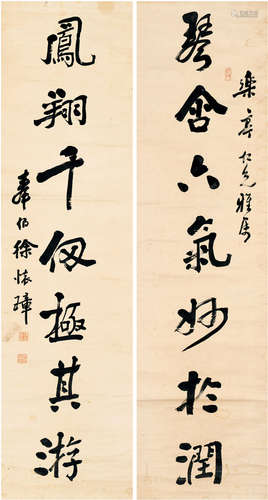 琴含六氣妙於潤
樂亭仁兄雅屬
鳳翔千仞極其游
奉伯徐懷璋